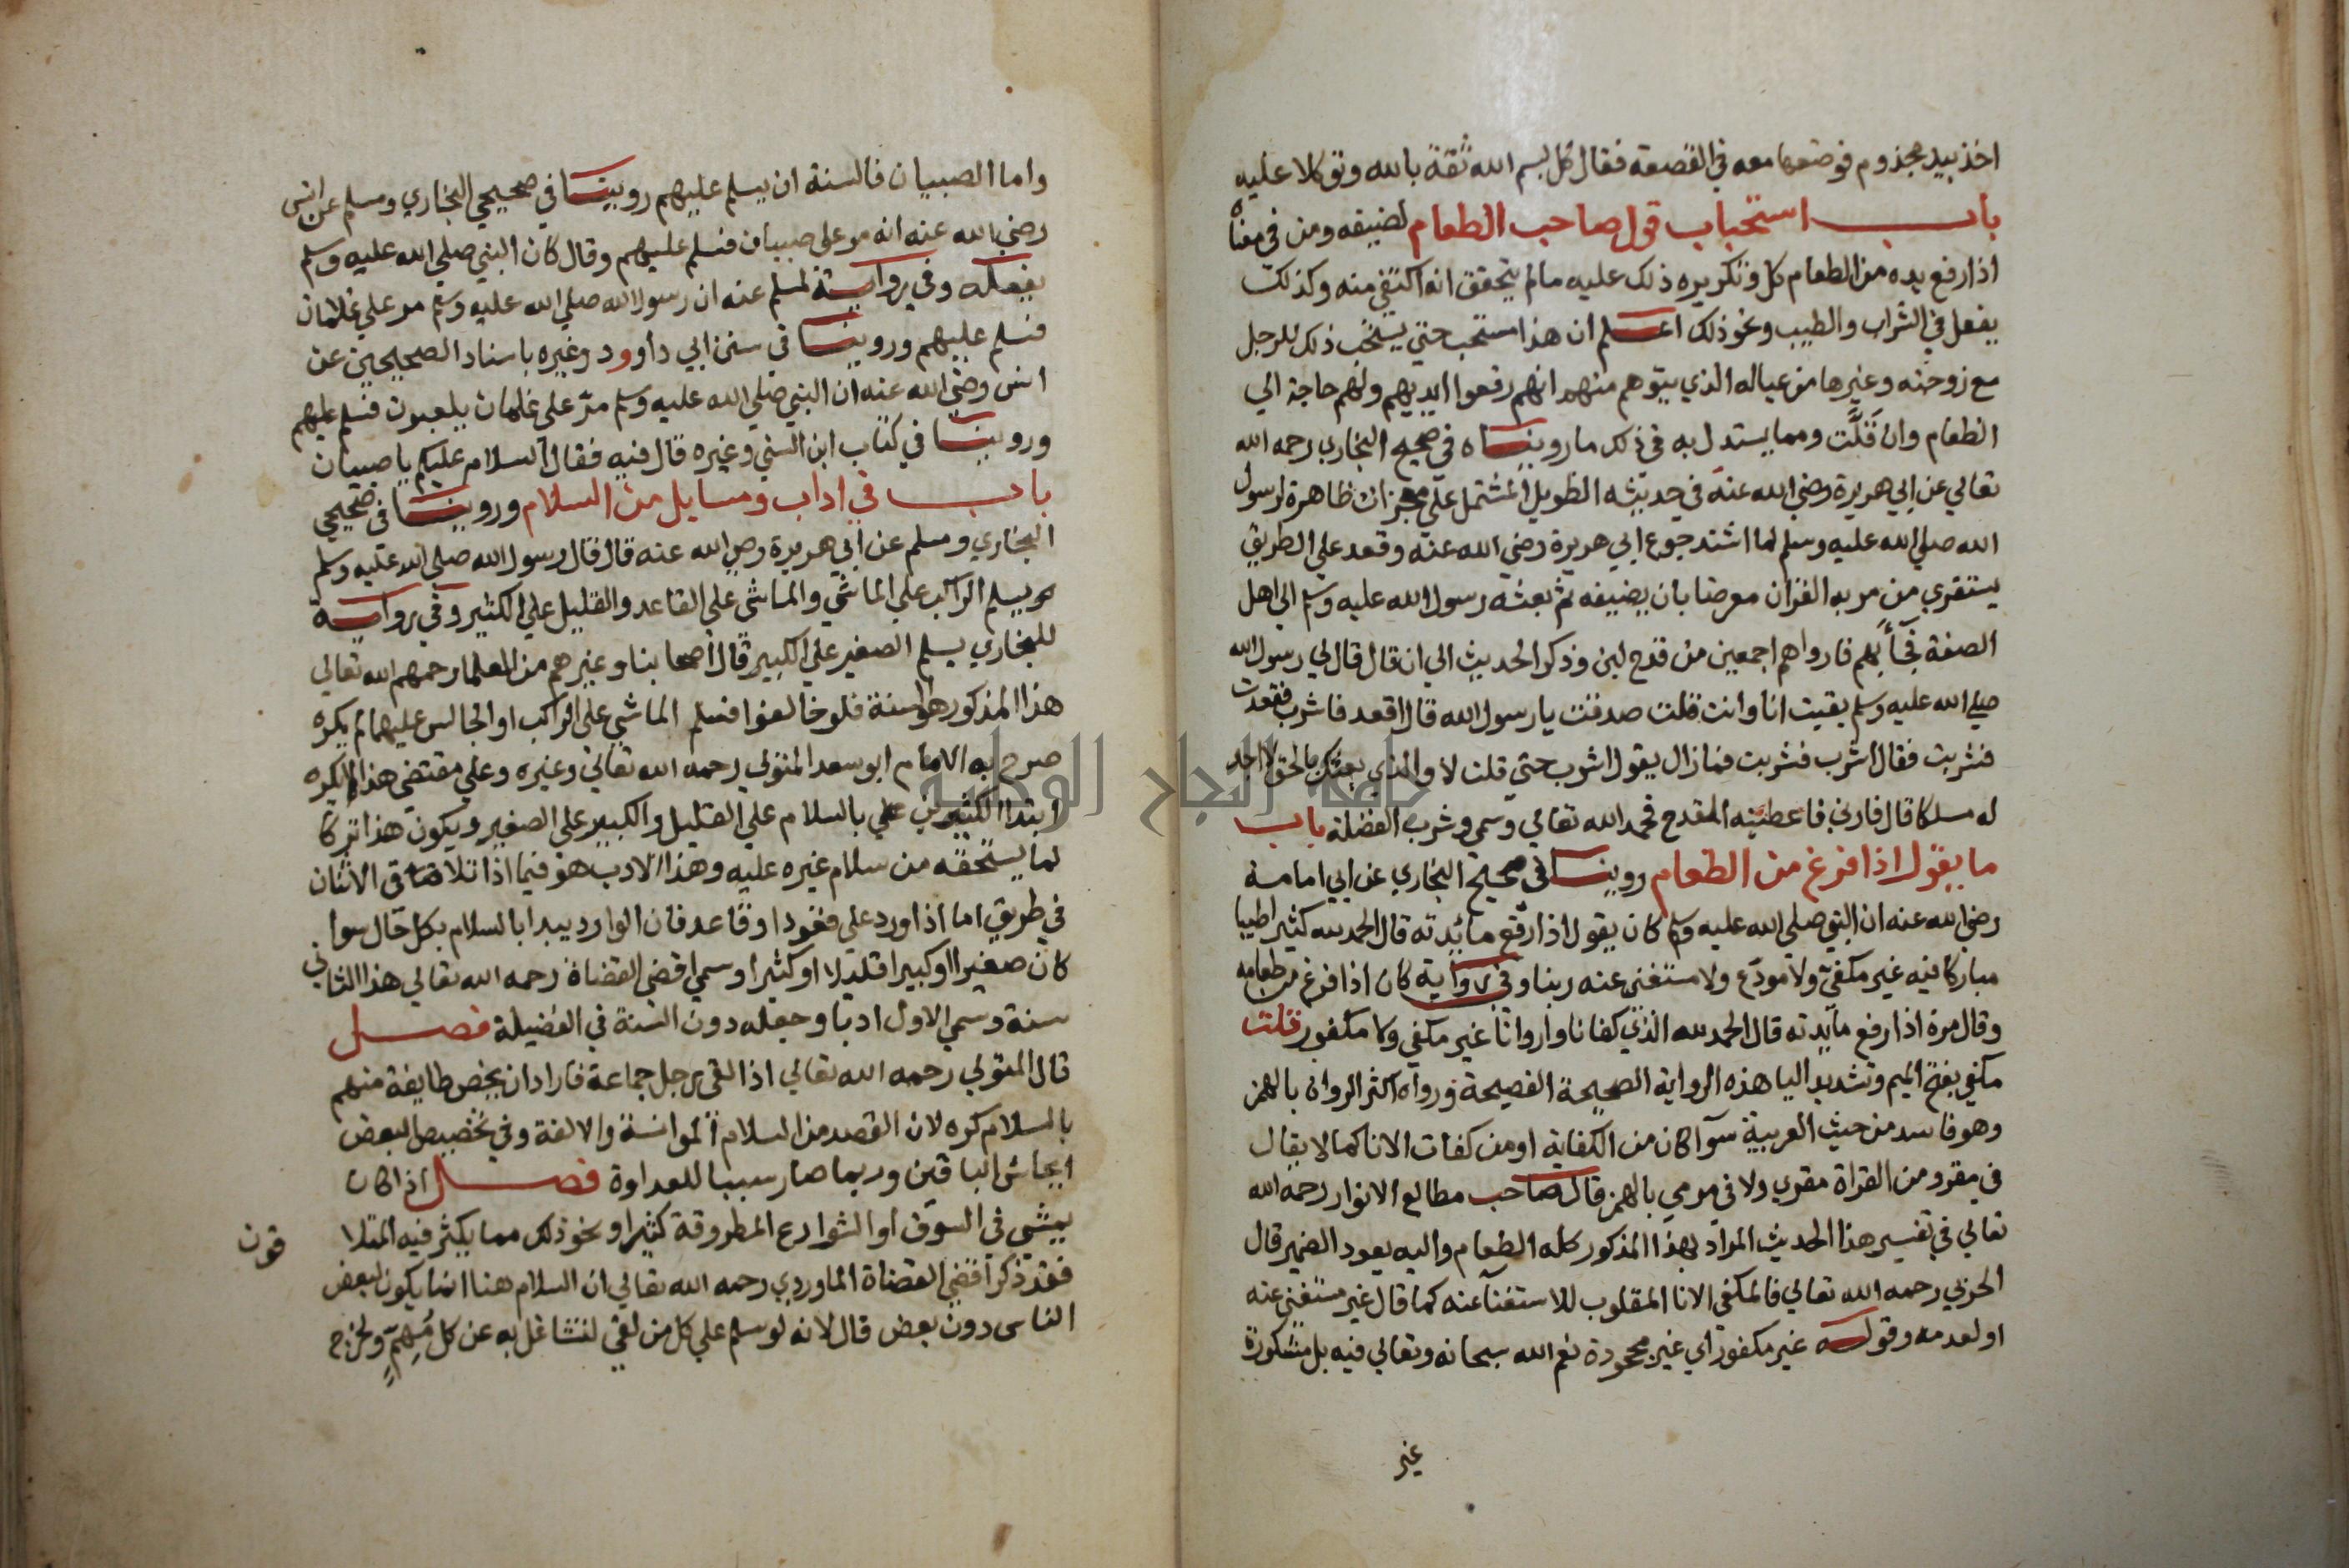 اخذ بيد مجذوم فوضعها معه في القصعة فقال كل بسم الله ثقة بالله وتوكلا عليه
باب استحباب قول صاحب الطعام لضيفه ومن في معناه
اذا رفع يده من الطعام كل وتكريره ذلك عليه مالم يتحقق انه اكتفي منه وكذلك
يفعل في الشراب والطيب ونحو ذلك اعلم ان هذا مستحب حتي يستحب ذلك للرجل
مع زوجته وغيرها من عياله الذي يتوهم منهم انهم رفعوا ايديهم ولهم حاجة الي
الطعام وان قَلَّت ومما يستدل به في ذلك ما رويناه في صحيح البخاري رحمه الله
تعالي عن ابي هريرة رضي الله عنه في حديثه الطويل المشتمل علي معجزات ظاهرة لرسول
الله صلي الله عليه وسلم لما اشتد جوع ابي هريرة رضي الله عنه وقعد علي الطريق
يستقري من مر به القران معرضا بان يضيفه ثم بعثه رسول الله عليه وسلم الي اهل
الصفة فجاء بهم فارواهم اجمعين من قدح لبن وذكر الحديث الي ان قال قال لي رسول الله
صلي الله عليه وسلم بقيت انا وانت قلت صدقت يا رسول الله قال اقعد فاشرب فقعدت
فشربت فقال اشرب فشربت فما زال يقول اشرب حتي قلت لا والذي بعثك بالحق لا اجد
له مسلكا قال فارني فاعطيته القدح فحمد الله تعالي وسمي وشرب الفضلة باب
ما يقول اذا فرغ من الطعام روينا في صحيح البخاري عن ابي امامة
رضي الله عنه ان النبي صلي الله عليه وسلم كان يقول اذا رفع مائدته قال الحمد لله كثيرا طيبا
مباركا فيه غير مكفي ولا مودع ولا مستغني عنه ربنا وفي رواية كان اذا فرغ من طعامه
وقال مرة اذا رفع مائدته قال الحمد لله الذي كفانا واروانا غير مكفي ولا مكفور قلت
مكفي بفتح الميم وتشديد اليا هذه الرواية الصحيحة الفصيحة ورواه اكثر الرواة بالهمز
وهو فاسد من حيث العربية سوآ كان من الكفاية او من كفات الانا كما لا يقال
في مقرو من القراة مقري ولا في مرمي بالهمز قال صاحب مطالع الانوار رحمه الله
تعالي في تفسير هذا الحديث المراد بهذا المذكور كله الطعام واليه يعود الضمير قال
الحربي رحمه الله تعالي فالمكفي الانا المقلوب للاستغنآ عنه كما قال غير مستغني عنه
او لعدمه وقوله غير مكفور اي غير مجحودة نعم الله سبحانه وتعالي فيه بل مشكورة
غير
واما الصبيان فالسنة ان يسلم عليهم روينا في صحيحي البخاري ومسلم عن انس
رضي الله عنه انه مر على صبيان فسلم عليهم وقال كان النبي صلي الله عليه وسلم
يفعله وفي رواية لمسلم عنه ان رسول الله صلي الله عليه وسلم مر علي غلمان
فسلم عليهم وروينا في سنن ابي داوود وغيره باسناد الصحيحين عن
انس رضي الله عنه ان النبي صلي الله عليه وسلم مرّ على غلمان يلعبون فسلم عليهم
وروينا في كتاب ابن السني وغيره قال فيه فقال السلام عليكم يا صبيان
باب في اداب ومسايل من السلام وروينا في صحيحي
البخاري ومسلم عن ابي هريرة رضي الله عنه قال قال رسول الله صلي الله عليه وسلم
يسلم الراكب علي الماشي والماشي علي القاعد والقليل علي الكثير وفي رواية
للبخاري يسلم الصغير علي الكبير قال اصحابنا وغيرهم من العلما رحمهم الله تعالي
هذا المذكور هو السنة فلو خالفوا فسلم الماشي على الراكب او الجالس عليهما لم يكره
صرح به الامام ابو سعد المتولي رحمه الله تعالي وغيره وعلي مقتضي هذا لا يكره
ابتدا الكثيرين علي بالسلام علي القليل والكبير على الصغير ويكون هذا تركا
لما يستحقه من سلام غيره عليه وهذا الادب هو فيما اذا تلاقي الاثنان
في طريق اما اذا ورد علي قعود او قاعد فان الوارد يبدا بالسلام بكل حال سوا
كان صغيرا او كبيرا قليلا او كثيرا وسمي اقضي القضاة رحمه الله تعالي هذا الثاني
سنة وسمي الاول ادبا وجعله دون السنة في الفضيلة فصل
قال المتولي رحمه الله تعالي اذا لقي رجل جماعة فاراد ان يخص طايفة منهم
بالسلام كره لان القصد من السلام الموانسة والالفة وفي تخصيص البعض
ايحاش الباقين وربما صار سببا للعداوة فصل اذا كان
يمشي في السوق او الشوارع المطروقة كثيرا ونحو ذلك مما يكثر فيه المتلا
قون
فقد ذكر اقضي القضاة الماوردي رحمه الله تعالي ان السلام هنا انما يكون لبعض
الناس دون بعض قال لانه لو سلم علي كل من لقي لتشاغل به عن كل مُهِمٍّ ولخرج
جامعة النجاح الوطنية